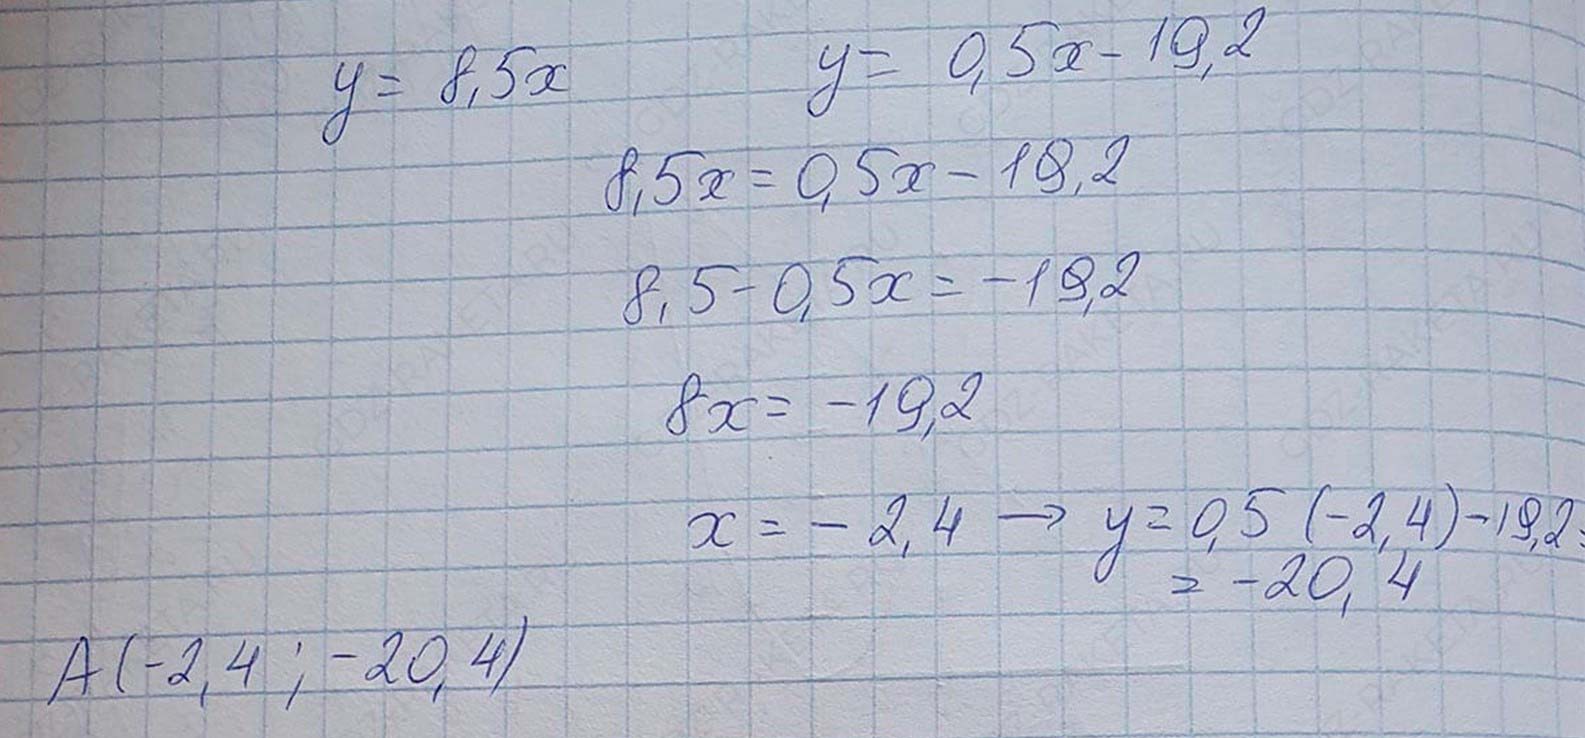 y = 8,5x y = 0,5x - 19,2
8,5x = 0,5x - 19,2
8,5 - 0,5x = -19,2
8x = -19,2
x = - 2,4 → y = 0,5 (-2,4) - 19,2 =
= -20,4
A (-2,4 ; -20,4)